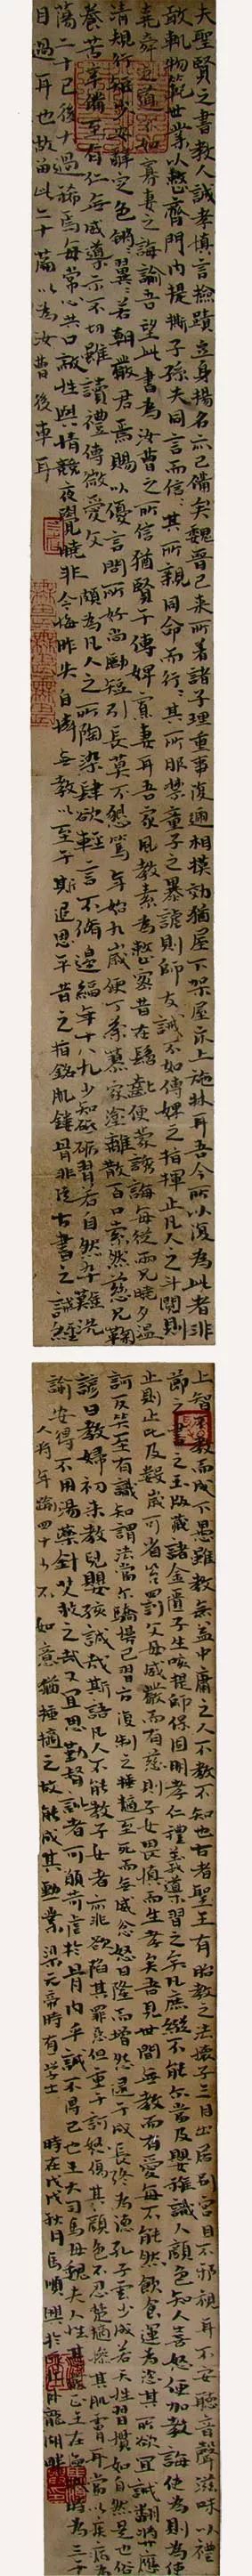 夫聖賢之書教人誠孝慎言檢蹟立身揚名亦已備矣魏晉已來所著諸子理重事復遞相模效猶屋下架屋床上施牀耳吾今所以復為此者非
敢軌物範世業以整齊門內提撕子孫夫同言而信信其所親同命而行行其所服禁童子之暴謔則師友誡不如傅婢之指揮止凡人之斗鬩則
堯舜之道不如寡妻之誨諭吾望此書為汝曹之所信猶賢于傅婢寡妻耳吾家風教素為整密昔在齠齔便蒙誘誨每從兩兄曉夕溫
凊規行矩步安辭定色鏘鏘翼翼若朝嚴君焉賜以優言問所好尚勵短引長莫不懇篤年始九歲便丁荼蓼家塗離散百口索然慈兄鞠
養苦辛備至有仁無威導示不切雖讀禮傳微愛文頗為凡人之所陶染肆欲輕言不脩邊幅年十八九少知砥礪習若自然卒難洗
蕩二十已後大過稀焉每常心共口敵性與情競夜覺曉非今悔昨失自憐無教以至于斯追思平昔之指銘肌鏤骨非徒古書之誡經
目過耳也故留此二十篇以為汝曹後車耳
上智不教而成下愚雖教無益中庸之人不教不知也古者聖王有胎教之法懷子三月出居別宮目不邪視耳不妄聽音聲滋味以禮
節之書之玉版藏諸金匱子生咳提師保固明孝仁禮義導習之矣凡庶縱不能爾當及嬰稚識人顏色知人喜怒便加教誨使為則為使
止則止比及數歲可省笞罰父母威嚴而有慈則子女畏慎而生孝矣吾見世間無教而有愛每不能然飲食運為恣其所欲宜誡翻獎應
訶反笑至有識知謂法當爾驕慢已習方復制之捶撻至死而無威忿怒日隆而增怨逮于成長終為德孔子云少成若天性習慣如自然是也俗
諺曰教婦初來教兒嬰孩誠哉斯語凡人不能教子女者亦非欲陷其罪惡但重于訶怒傷其顏色不忍楚撻慘其肌膚耳當以疾病為
諭安得不用湯藥針艾救之哉又宜思勤督訓者可願苛虐於骨肉乎誠不得已也王大司馬母魏夫人性甚嚴正王在湓城時為三千
人將年踰四十少不如意猶捶撻之故能成其勳業梁元帝時有學士 時在戊戌秋月馬順興於卧龍湖畔